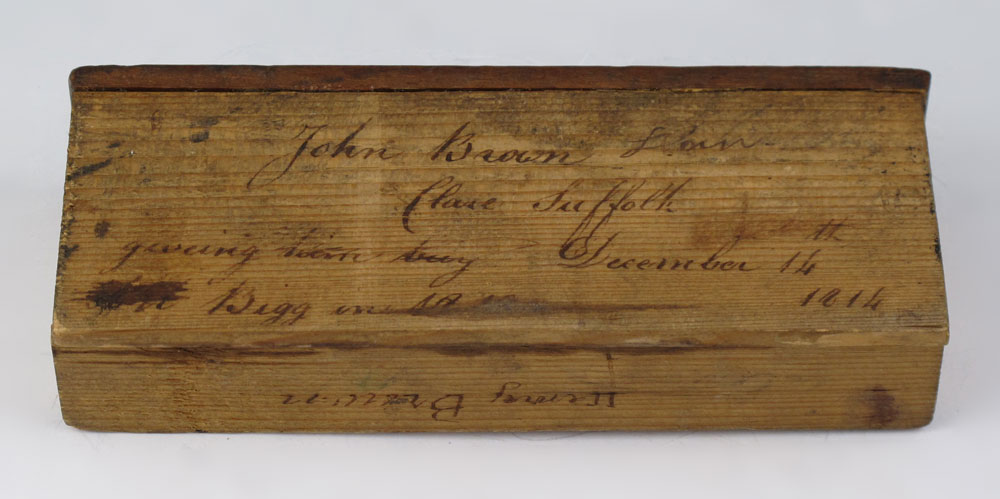 John Brown
Clare Suffolk
giveing him December 14th
Bigg in 1814
Henry Brown